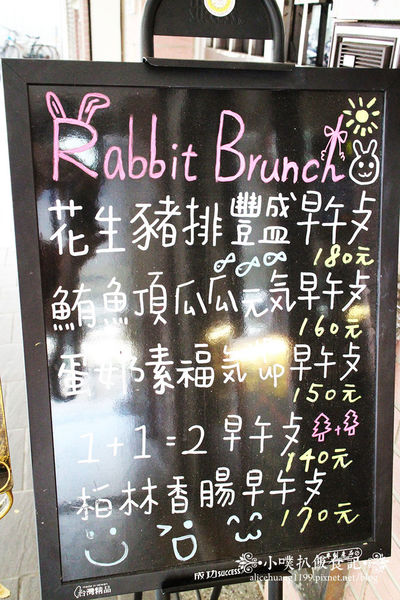 Rabbit Brunch
花生豬排豐盛早午夕
180元
鮪魚頂瓜瓜元気早午夕
160元
蛋奶素福気up早午夕
150元
1+1=2早午夕
140元
柏林香腸早午夕
170元
台灣精品
成功success
小噗扒飯食記
alicehuang1199.pixnet.net/blog